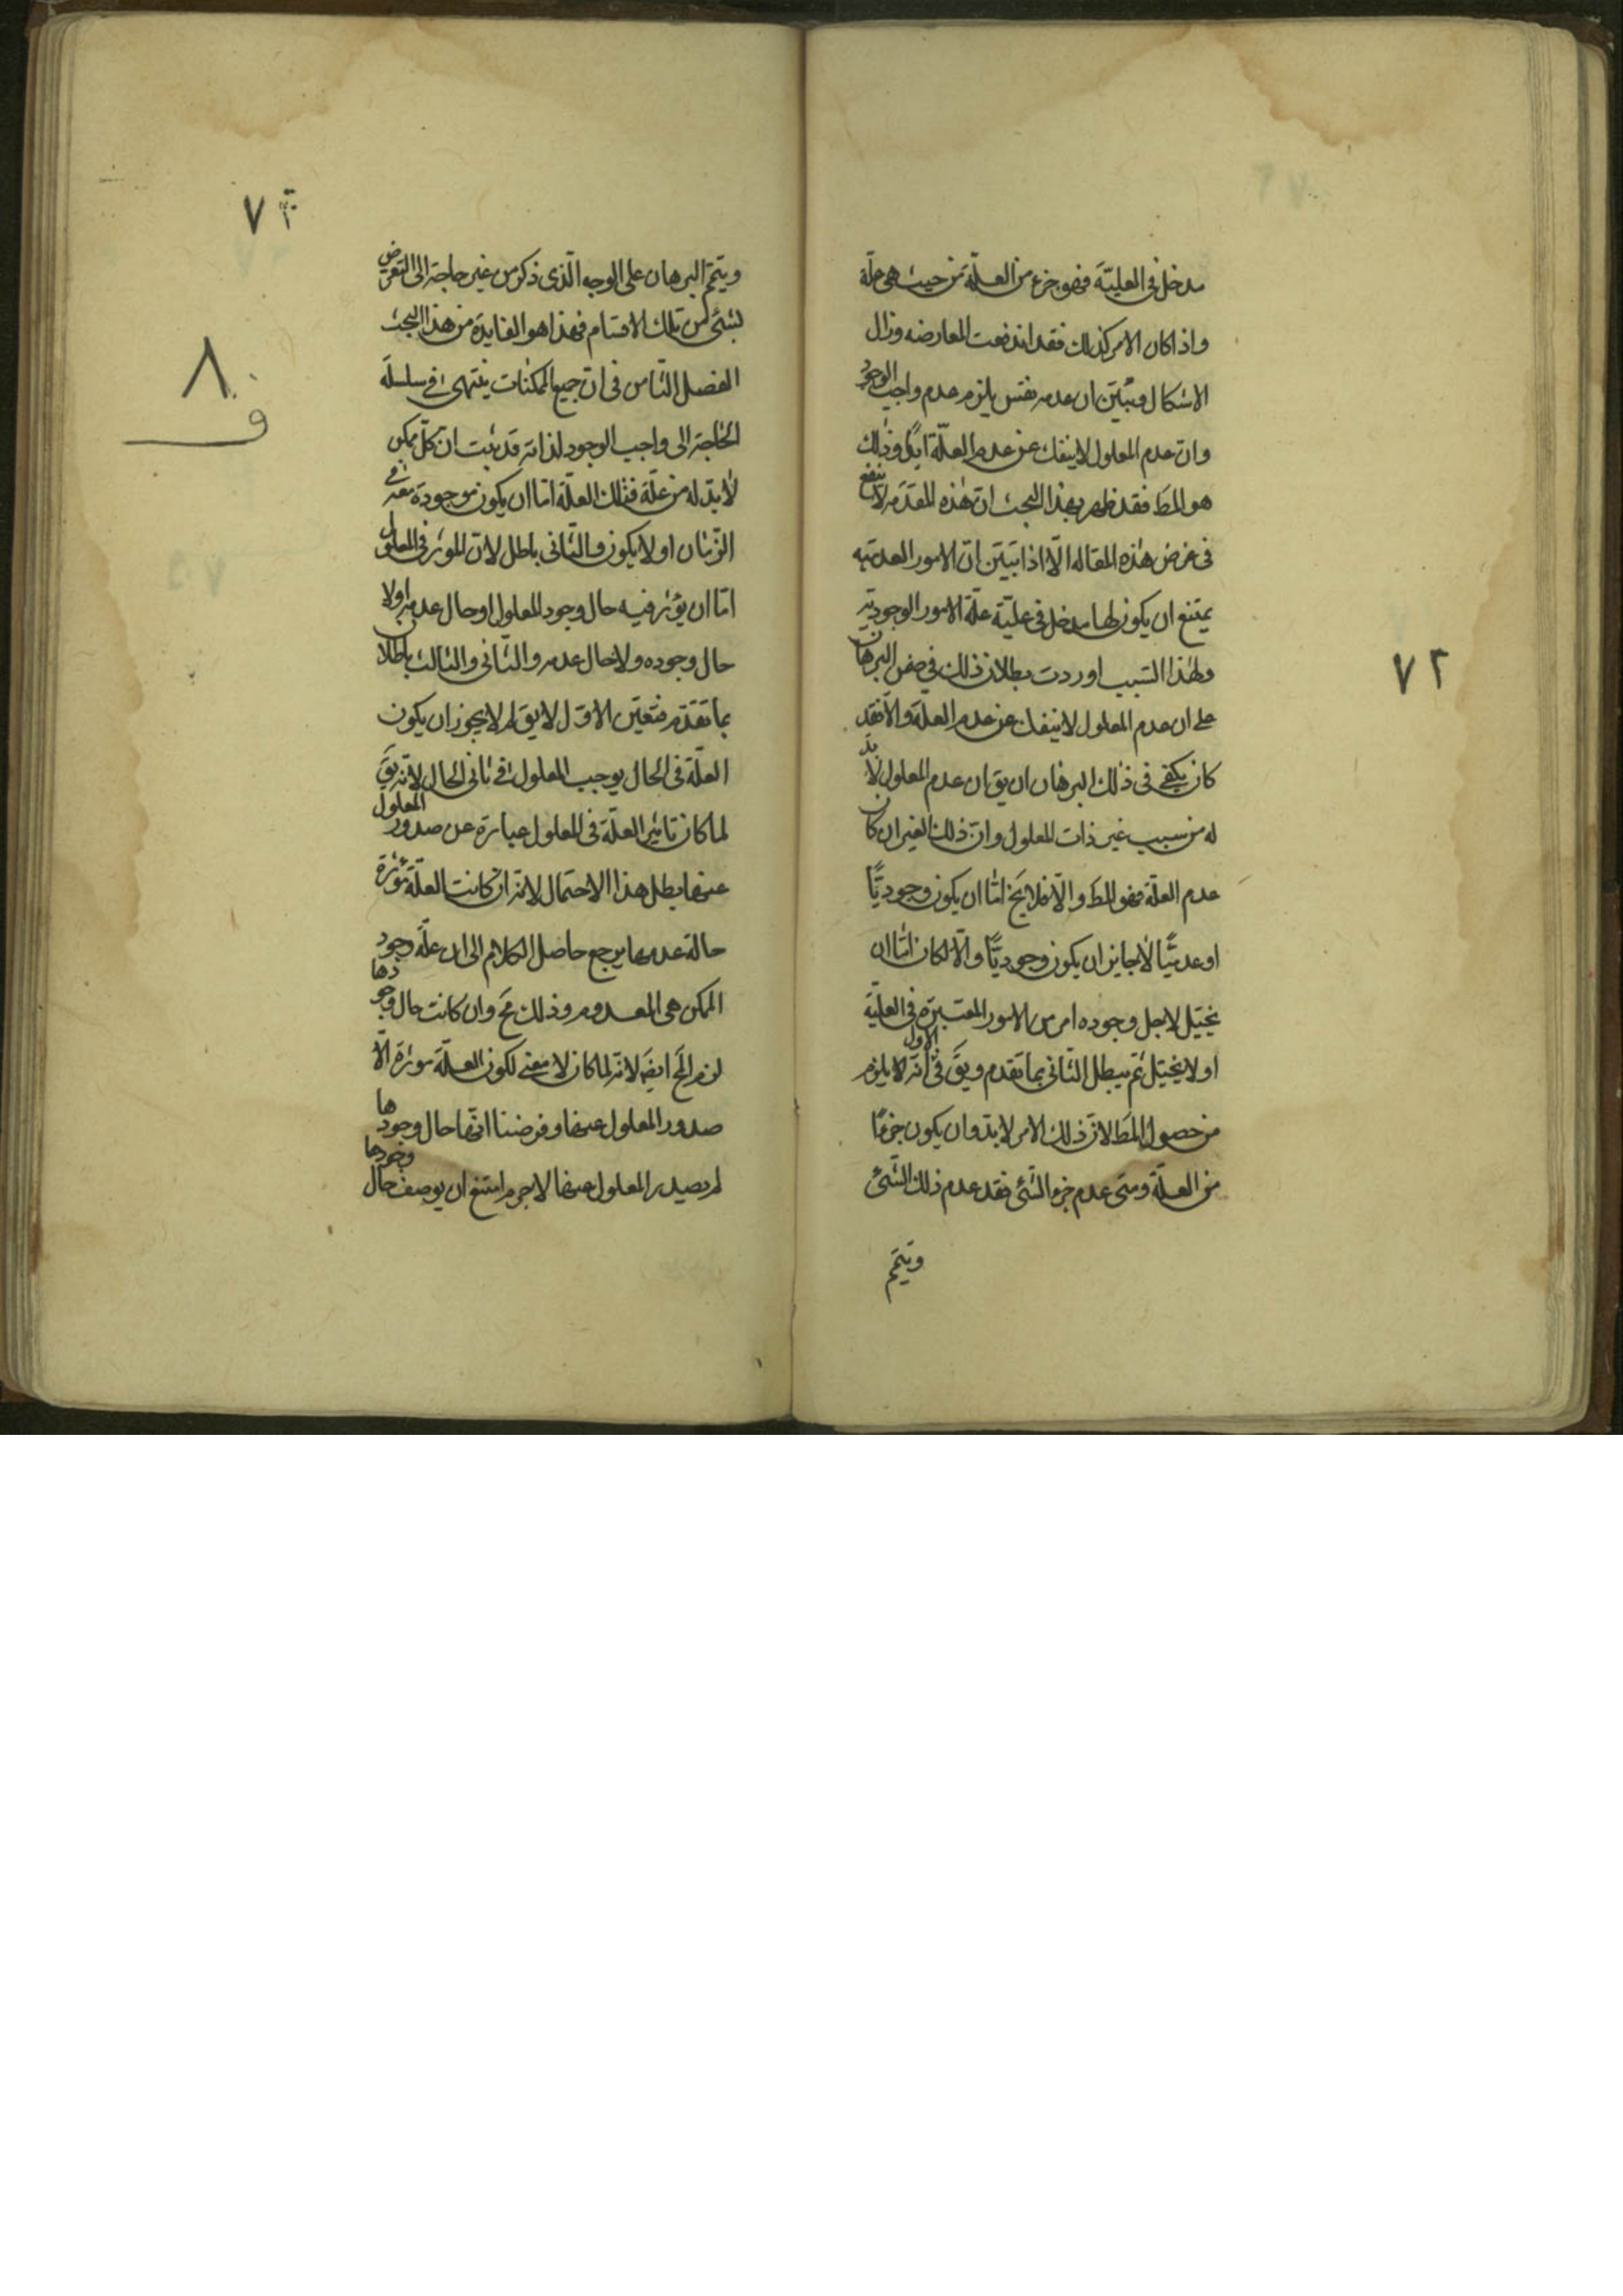 مدخل فى العليّة فهو جزء من العلّة من حيث هى علّة
واذا كان الامر كذلك فقد اندفعت المعارضه وزال
الاشكال وتبيّن ان عدمه نفس يلزم عدم واجب الوجود
وان عدم المعلول لا ينفك عن عدم العلّة ابدًا وذلك
هو المط فقد ظهر بهذا البحث ان هذه المقدمه لا تنفع
فى غرض هذه المقاله الّا اذا تبيّن ان الامور العدميه
يمتنع ان يكون لها مدخل فى عليّة علّة الامور الوجوديّه
ولهذا السّبب اوردت بطلان ذلك فى ضمن البرهان
على ان عدم المعلول لا ينفك عن عدم العلّة والّا فقد
كان يكفى فى ذلك البرهان ان يق ان عدم المعلول لا بد
له من سبب غير ذات المعلول وانّ ذلك الغير ان كان
عدم العلّة فهو المط والّا فلا يخ امّا ان يكون وجوديًّا
او عدميًّا لا جايز ان يكون وجوديًّا والّا لكان امّا ان
يختل لاجل وجوده امر من الامور المعتبرة فى العليّة
او لا يختل ثم يبطل الثانى بما تقدم ويق فى الاول انّه لا يلزم
من حصول المط لان ذلك الامر لا بد وان يكون جزءًا
من العلّة ومتى عدم جزء الشئ فقد عدم ذلك الشّئ
ويتمّ
٧٢
٧٣
ويتمّ البرهان على الوجه الّذى ذكر من غير حاجة الى التعرض
لشئ من تلك الاقسام فهذا هو الفايدة من هذا البحث
الفصل الثامن فى انّ جميع الممكنات ينتهى فى سلسلة
الحاجة الى واجب الوجود لذاته قد ثبت ان كلّ ممكن
لا بدّ له من علّة فتلك العلّة امّا ان يكون موجودة معه فى
الزّمان او لا يكون والثّانى باطل لانّ المؤثر فى المعلول
امّا ان يؤثر فيه حال وجود المعلول او حال عدمه او لا
حال وجوده ولا حال عدمه والثّانى والثالث باطلان
بما تقدّم فتعيّن الاوّل لا يق لم لا يجوز ان يكون
العلّة فى الحال يوجب المعلول فى ثانى الحال لانّه يق
لما كان تاثير العلّة فى المعلول عبارة عن صدور المعلول
عنها بطل هذا الاحتمال لانّه ان كانت العلّة مؤثرة
حالة عدمها يرجع حاصل الكلام الى ان علّة وجود
الممكن هى المعدوم وذلك مح وان كانت حال وجودها
لزم المح ايضَ لانّه لما كان لا معنى لكون العلّة مؤثرة الّا
صدور المعلول عنها وفرضنا انّها حال وجودها
لم يصدر المعلول عنها لا جرم امتنع ان يوصف حال وجودها
٨